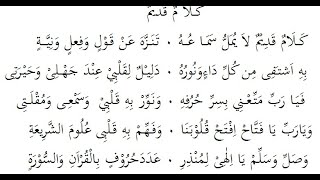 كَلَا مٌ قَدِيمٌ
كَلَامٌ قَدِيمٌ لَا يُمَلُّ سَمَا عُهُ · تَنَزَّهَ عَنْ قَوْلٍ وَفِعْلٍ وَنِيَّةٍ
بِهِ اَشْتَفِى مِنْ كُلِّ دَاءٍ وَنُورُهُ · دَلِيْلٌ لِقَلْبِيْ عِنْدَ جَهْلِىْ وَحَيْرَتِىْ
فَيَا رَبِّ مَتِّعْنِيْ بِسِرِّ حُرُوْفِهِ · وَنَوِّرْ بِهِ قَلْبِيْ وَسَمْعِىْ وَمُقْلَتِىْ
وَيَارَبِّ يَا فَتَّاحُ اِفْتَحْ قُلُوْبَنَا · وَفَهِّمْ بِهِ قَلْبِىْ عُلُوْمَ الشَّرِيْعَةِ
وَصَلِّ وَسَلِّمْ يَا اِلٰهِىْ لِمُنْذِرٍ · عَدَدَحُرُوْفٍ بِالْقُرْآنِ وَالسُّوْرَةِ